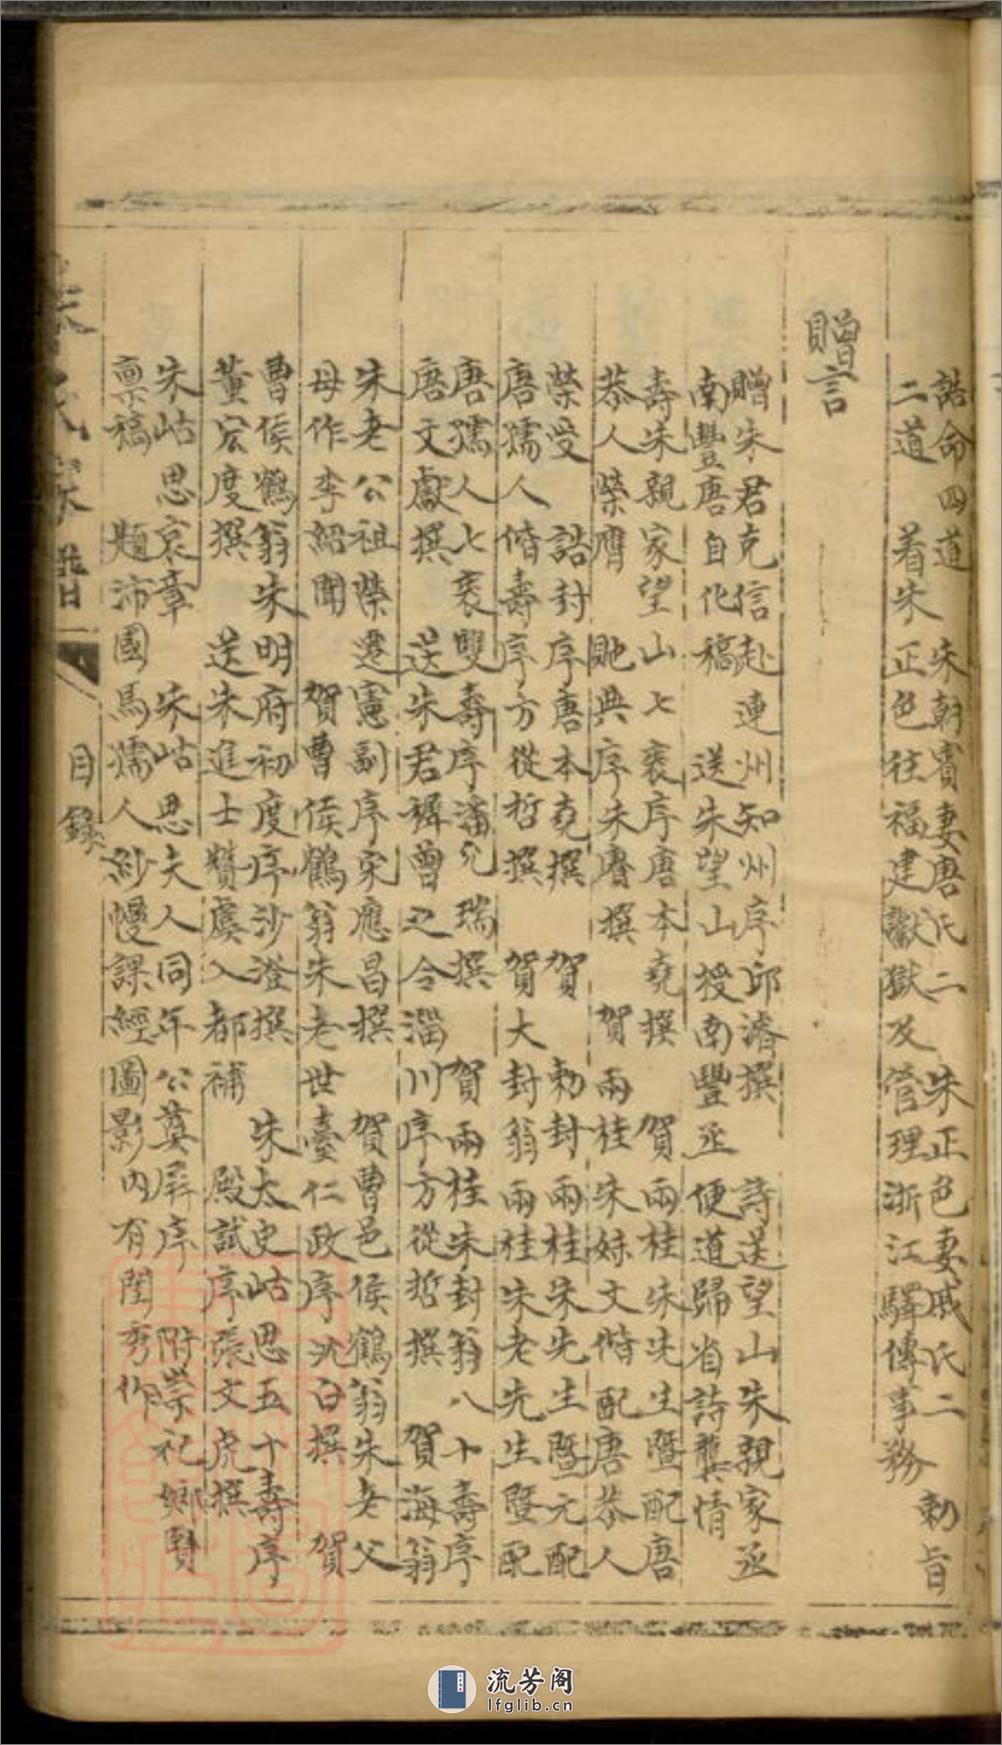 誥命四道　朱朝賓妻唐氏二　朱正色妻戚氏二　勅旨
二道　着朱正色往福建讞獄及管理浙江驛傳事務
贈言
贈朱君克信赴連州知州序邱濬撰　詩送望山朱親家丞
南豐唐自化稿　送朱望山授南豐丞便道歸省詩龔情
壽朱親家望山七袠序唐本堯撰　賀兩桂朱先生暨配唐
恭人榮膺　貤典序朱賡撰　賀兩桂朱妹丈偕配唐恭人
榮受　誥封序唐本堯撰　賀　勅封兩桂朱先生暨元配
唐孺人偕壽序方從哲撰　賀大封翁兩桂朱老先生暨配
唐孺人七袠雙壽序潘允瑞撰　賀兩桂朱封翁八十壽序
唐文獻撰　送朱君禪曾之令淄川序方從哲撰　賀海翁
朱老公祖榮遷憲副序宋應昌撰　賀曹邑侯鶴翁朱老父
母作李紹聞　賀曹侯鶴翁朱老世臺仁政序沈白撰　賀
曹侯鶴翁朱明府初度序沙澄撰　朱太史岵思五十壽序
董宏度撰　送朱進士贊虞入都補　殿試序張文虎撰
朱岵思哀章　朱岵思夫人同年公奠屏序　附崇祀鄉賢
稟稿　題沛國馬孺人紗幔課經圖影內有閨秀作
朱氏家譜　目錄
流芳阁
lfglib.cn